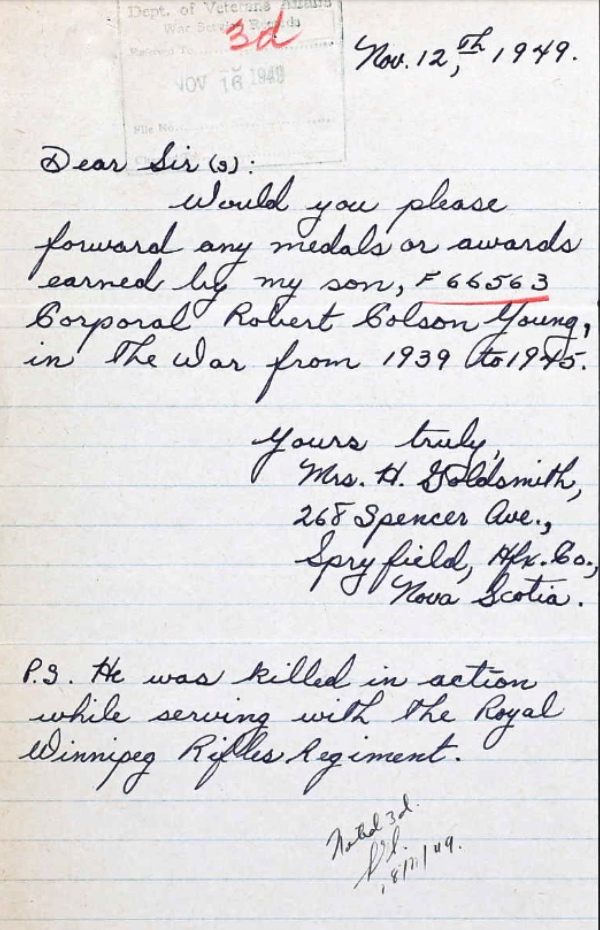 Dept. of Veterans Affairs
War Service Records
3d
Referred To
NOV 16 1949
File No.
Nov. 12,th 1949.
Dear Sir (s):
Would you please
forward any medals or awards
earned by my son, F 66563
Corporal Robert Colson Young,
in the War from 1939 to 1945.
Yours truly,
Mrs. H. Goldsmith,
268 Spencer Ave.,
Spryfield, Hfx. Co.,
Nova Scotia.
P.S. He was killed in action
while serving with the Royal
Winnipeg Rifles Regiment.
Noted 3d.